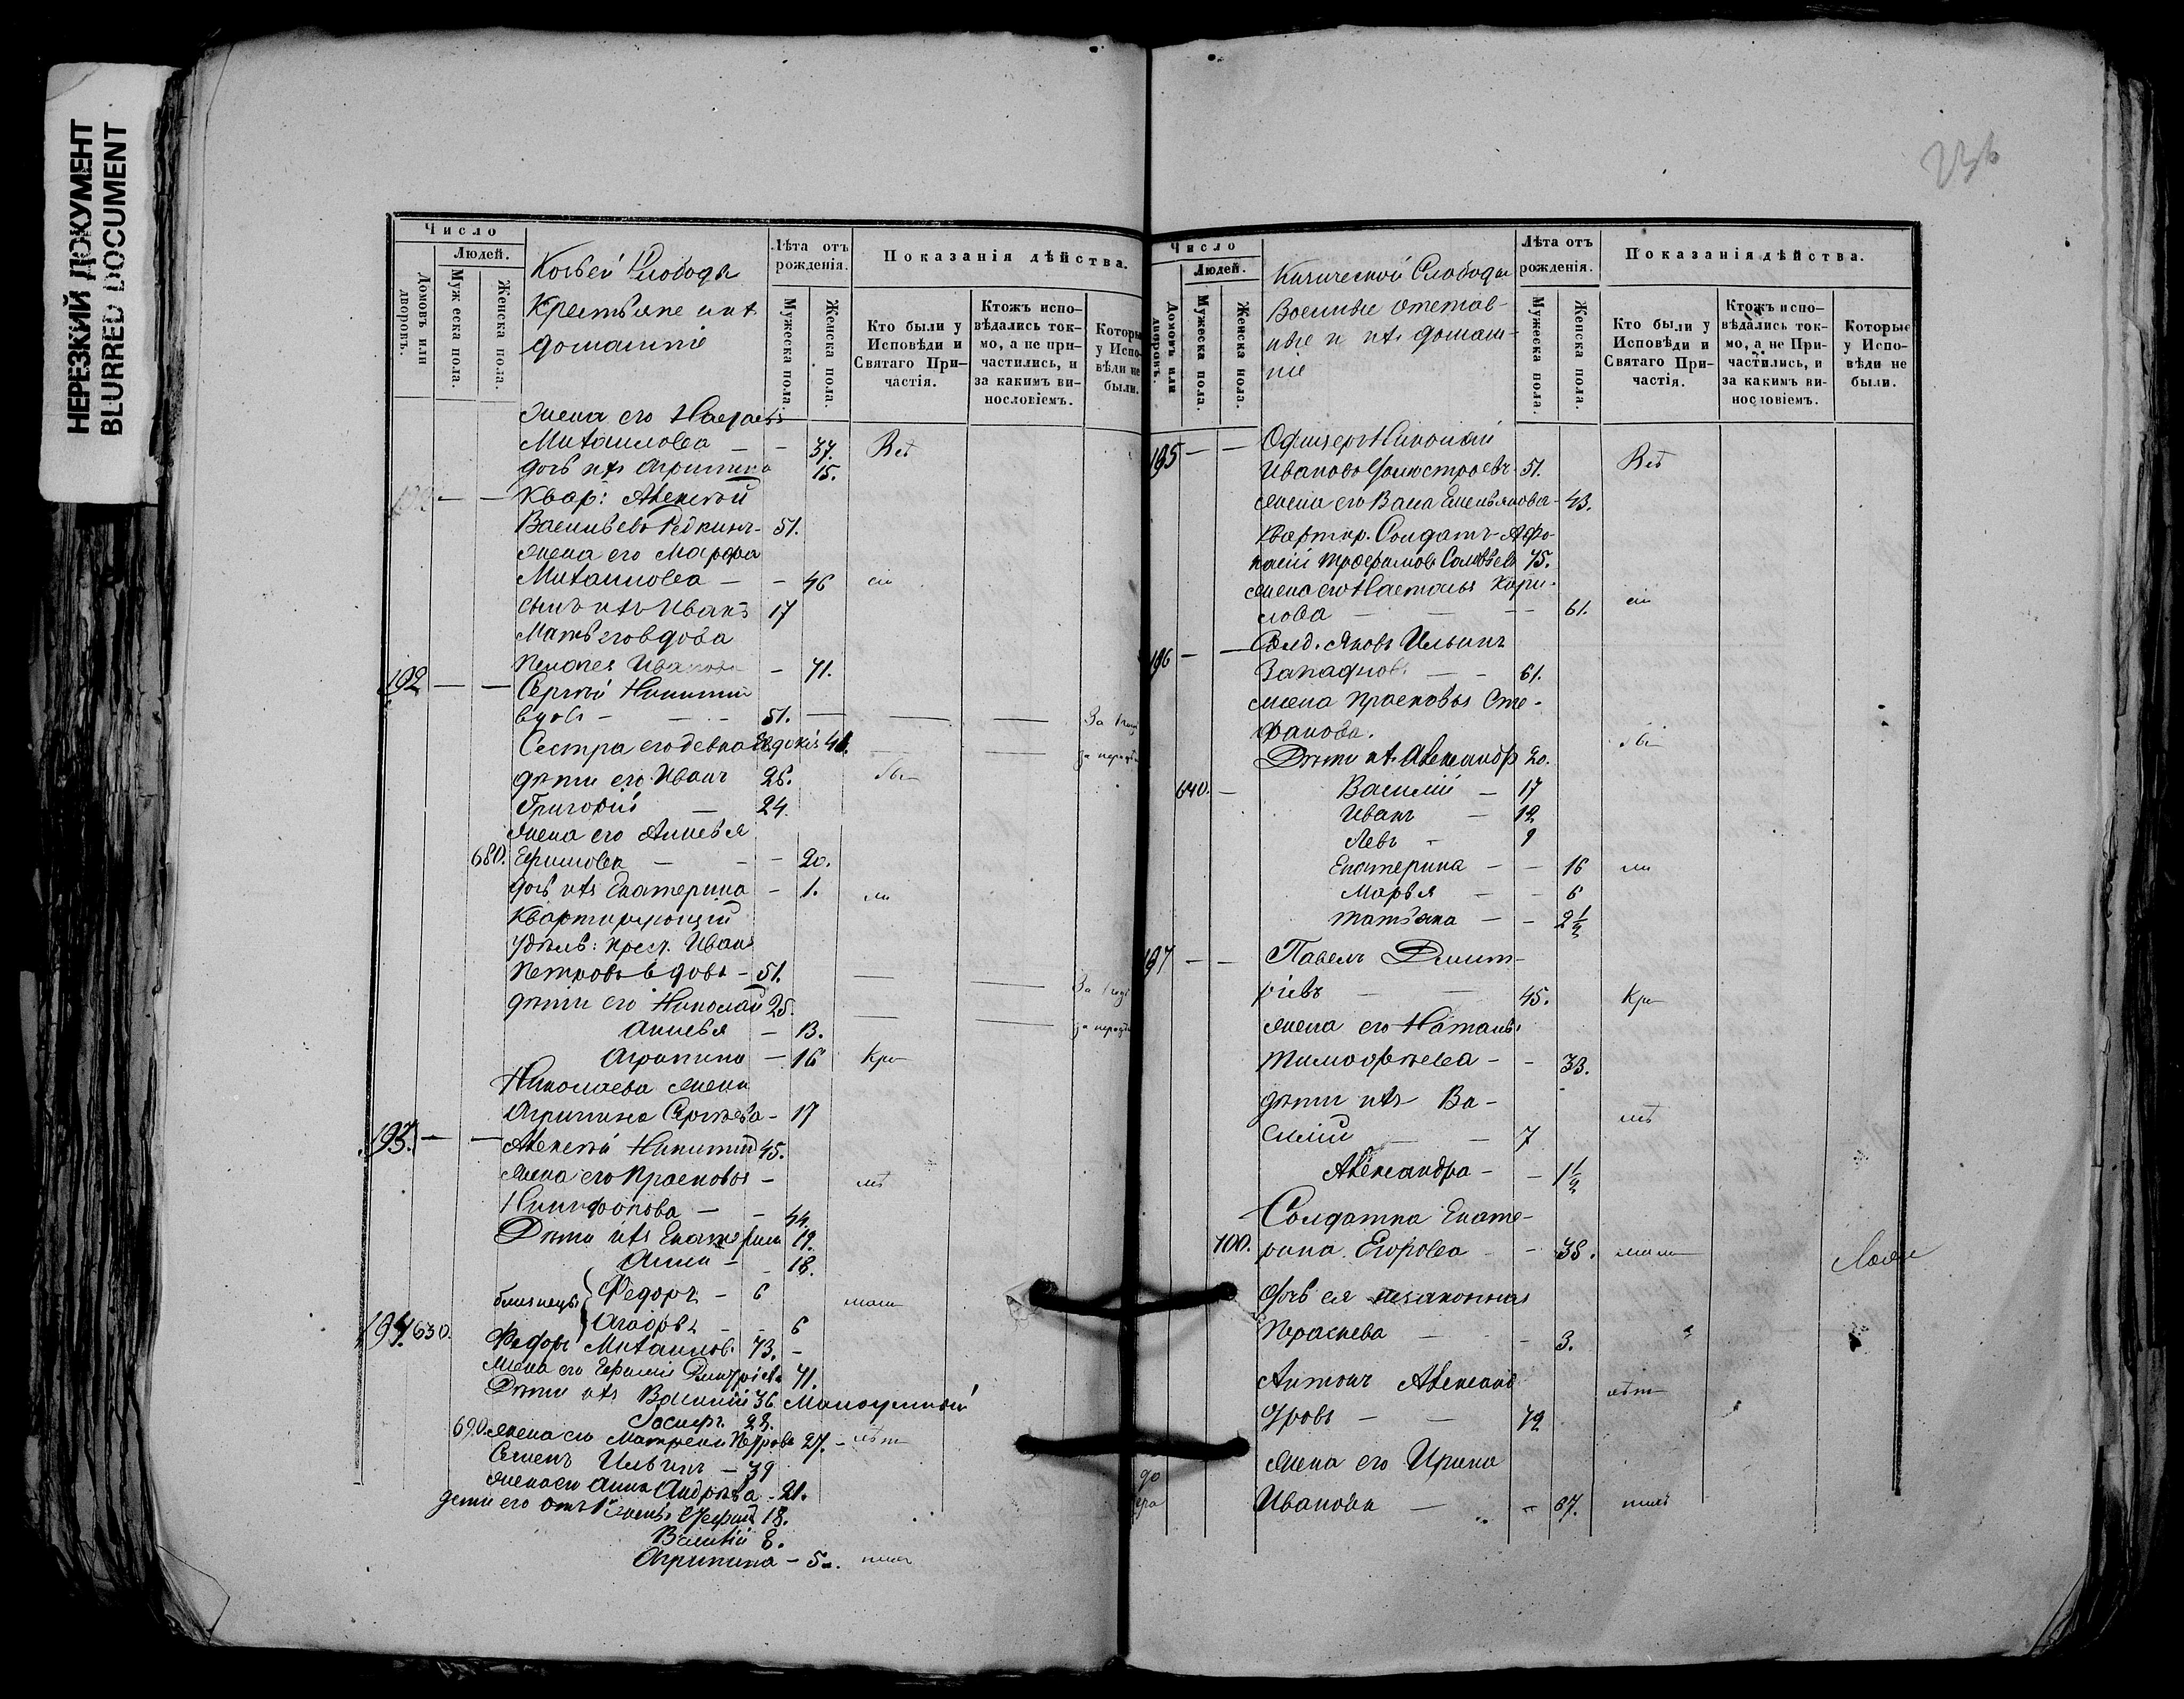 НЕРЕЗКИЙ ДОКУМЕНТ
BLURRED DOCUMENT
Число
Людей.
Домовъ или дворовъ.
Мужеска пола.
Женска пола.
Слобода
Крестьяне и ихъ
домашніе
Лѣта отъ рожденія.
Мужеска пола.
Женска пола.
Показанія дѣйства.
Кто были у Исповѣди и Святаго Причастія.
Ктожъ исповѣдались токмо, а не причастились, и за какимъ винословіемъ.
Которые у Исповѣди не были.
Жена его
Михайлова — 37.
дочь ихъ Агрипина 15.
— — Квар: Алексѣй
Васильевъ Редкинъ 51.
Жена его Марфа
Михайлова — — 46
сынъ ихъ Иванъ 17
Мать его вдова
Пелагея Иванова — 71.
192 — — Сергѣй Никитин
вдовъ — — — 51. — — —
Сестра его девка Евдокія — —
дѣти его Иванъ 26.
Григорій — 24.
Жена его Анисья
680. Ефимова — — — 20.
дочь ихъ Екатерина — 1.
Квартирующій
удѣль: крест. Иванъ
Петровъ вдовъ — 51. — —
дѣти его Николай 25. — —
Анисья — 13.
Агрипина — 16
Николаева жена
Агрипина Сергѣева — 17
193. — — Алексѣй Никитин 45.
жена его Прасковья —
Никифорова — — 44.
Дѣти ихъ Екатерина 19.
Анна — — 18.
близнецы Федоръ — 6
— — 6
194. 630. Федоръ Михайлов. 73. —
жена его Ефимія Дмитріева 71.
Дѣти ихъ Василій 36 Малоумный
Іосифъ 28.
690. жена его Матрена Петрова 27. —
Семенъ Ильинъ — 39
жена его Анна Андрѣева — 21.
дети его отъ 18.
Василій 8.
Агрипина — 5.
Число
Людей.
Домовъ или дворовъ.
Мужеска пола.
Женска пола.
Кизической Слободы
Военные отстав-
ные и ихъ домаш-
ніе
Лѣта отъ рожденія.
Мужеска пола.
Женска пола.
Показанія дѣйства.
Кто были у Исповѣди и Святаго Причастія.
Ктожъ исповѣдались токмо, а не Причастились, и за какимъ винословіемъ.
Которые у Исповѣди не были.
195 — — Офицеръ Николай
Ивановъ 51.
жена его Васа Емельянова — 43.
Квартир. Солдатъ Афо-
насій Трофимовъ 75.
жена его Наталья Кори-
лова — — — 61.
196 — — Солд. Яковъ Ильинъ
— — 61.
жена Прасковья Сте-
фанова.
Дѣти ихъ Александр 20.
640. — Василій — 17
Иванъ — 12
Левъ — 9
Екатерина — — 16
Марья — — 6
Татьяна — — 2½
197 — — Павелъ Дмит-
ріевъ — — 45.
жена его Наталья
Тимофѣева — — 33.
дѣти ихъ Ва-
силій — — 7
Александра — — 1½
Солдатка Екате-
700. рина Егорова — — 38.
дочь ея незаконная
— — 3.
Антонъ Александ
ровъ — — 72
жена его Ирина
Иванова — — 67.